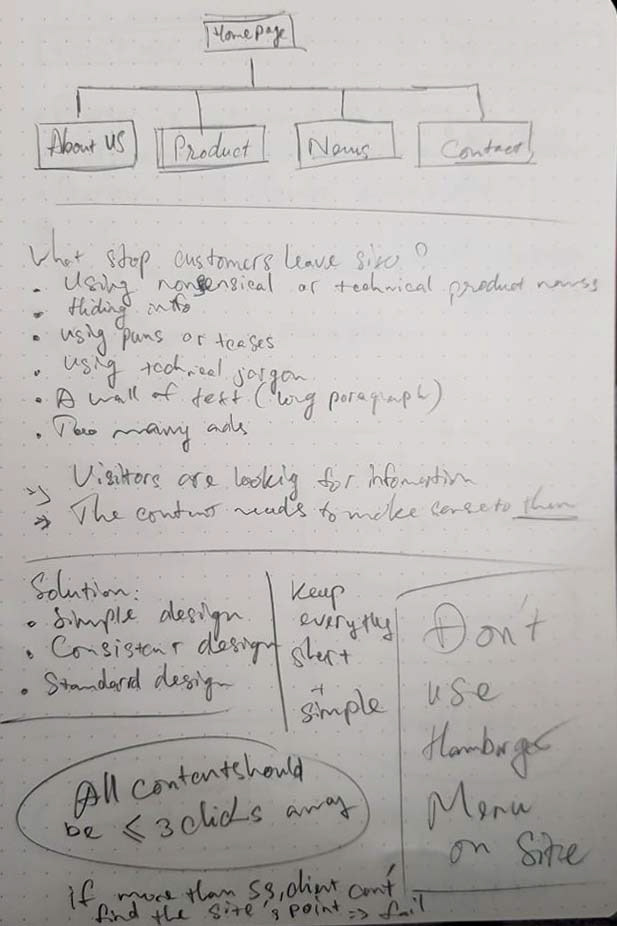 Homepage
About US
Product
News
Contact
What stop customers leave site?
• Using nonsensical or technical product names
• Hiding info
• using puns or teases
• using technical jargon
• A wall of text (long paragraph)
• Too many ads
=> Visitors are looking for information
=> The content needs to make sense to them
Solution:
• Simple design
• Consistent design
• Standard design
Keep
everything
short
+
simple
Don't
use
Hamburger
Menu
on Site
All content should
be ≤ 3 clicks away
if more than 5s, client can't
find the site's point => fail